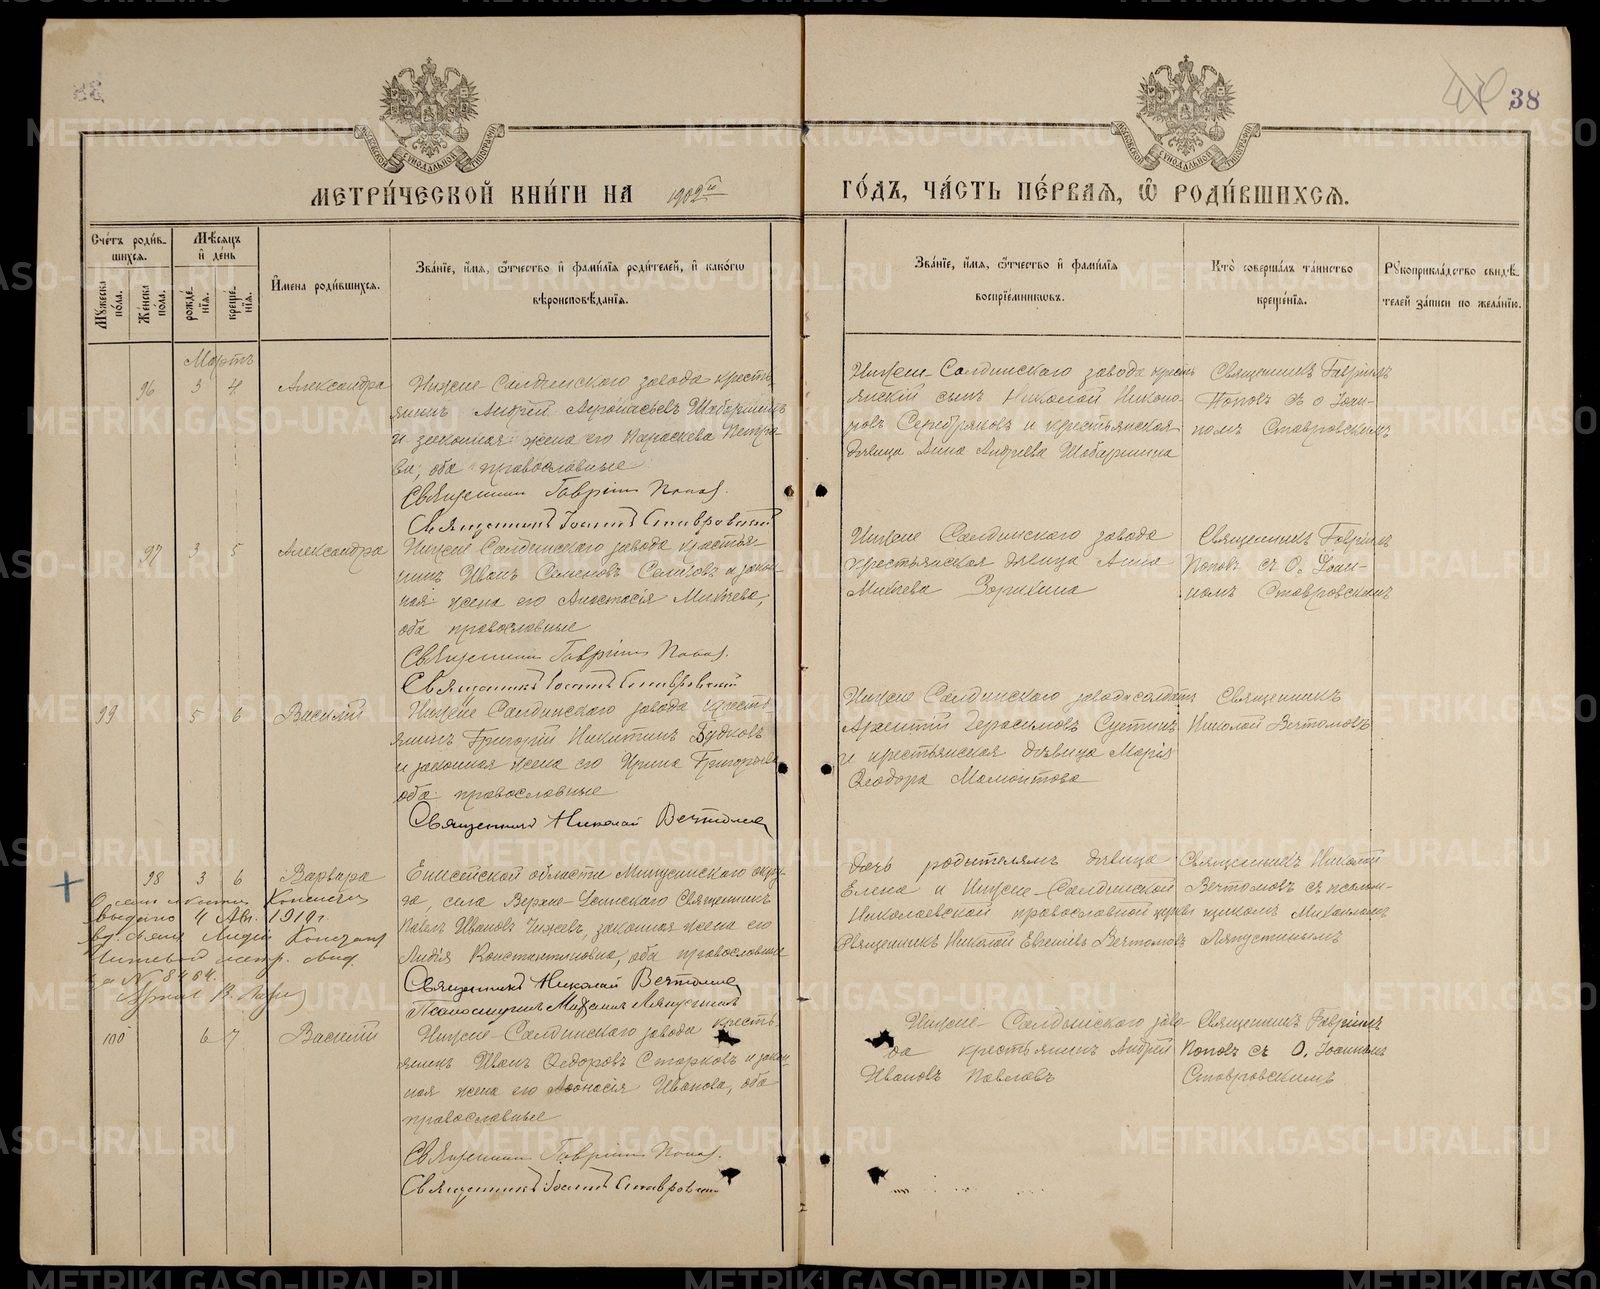 38
МЕТРИ́ЧЕСКОЙ КНИ́ГИ НА 1902й ГО́ДЪ, ЧА́СТЬ ПЕ́РВАѦ, Ѡ РОДИ́ВШИХСѦ.
Сче́тъ роди́в-
шихся.
Мѣ́сяцъ
и де́нь
Му́жеска
по́ла.
Же́нска
по́ла.
рожде́-
нїя.
креще́-
нїя.
И҆мена роди́вшихся.
Зва́нїе, и҆́мя, ѻ҆́тчество и҆ фами́лїя роди́телей, и҆ како́гѡ
вѣроисповѣ́данїя.
Зва́нїе, и҆́мя, ѻ҆́тчество и҆ фами́лїя
воспрїе́мникѡвъ.
Кто̀ соверша́лъ та́инство
креще́нїя.
Рꙋкоприкла́дство свидѣ́-
телей за́писи по жела́нїю.
Мартъ
96 3 4 Александра
Нижне-Салдинского завода кресть-
янинъ Андрей Афонасьевъ Шабаршинъ
и законная жена его Параскева Петро-
ва, оба православные
Священникъ Гавріилъ Поповъ.
Священникъ Іоаннъ Ставровскій
Нижне-Салдинского завода кресть-
янскій сынъ Николай Никано-
ровъ Серебряковъ и крестьянская
дѣвица Анна Андреева Шабаршина
Священникъ Гавріилъ
Поповъ съ о. Іоан-
номъ Ставровскимъ
97 3 5 Александра
Нижне Салдинского завода крестья-
нинъ Иванъ Семеновъ и закон-
ная жена его Анастасія Михѣева,
оба православные
Священникъ Гавріилъ Поповъ.
Священникъ Іоаннъ Ставровскій
Нижне Салдинского завода
крестьянская дѣвица Анна
Михѣева Зорихина
Священникъ Гавріилъ
Поповъ съ О. Іоан-
номъ Ставровскимъ
99 5 6 Василій
Нижне Салдинского завода кресть-
янинъ Григорій Никитинъ Будковъ
и законная жена его Ирина Григорьева
оба православные
Священникъ Николай Вечтомовъ
Нижне Салдинского завода солдатъ
Герасимовъ Сустинъ
и крестьянская дѣвица Марія
Ѳеодора Мамонтова
Священникъ
Николай Вечтомовъ
98 3 6 Варвара
Енисейской области Минусинского окру-
га, села Верхне-Усинского Священникъ
Павелъ Ивановъ Чижевъ, законная жена его
Лидія Константиновна, оба православные
Священникъ Николай Вечтомовъ
Псаломщикъ Михаилъ Ляпустинъ
дочь родителямъ дѣвица
Елена и Нижне-Салдинской
Николаевской православной церкви
Священникъ Николай Евгеніевъ Вечтомовъ
Священникъ Николай
Вечтомовъ съ псалом-
щикомъ Михаиломъ
Ляпустинымъ
выдано 4 Авг. 1919 г.
Лидіи
метр. свид.
за № 8464.
100 6 7 Василій
Нижне-Салдинского завода кресть-
янинъ Иванъ Ѳедоровъ Старковъ и закон-
ная жена его Афонасія Иванова, оба
православные
Священникъ Гавріилъ Поповъ.
Священникъ Іоаннъ Ставровскій
Нижне-Салдинского заво-
да крестьянинъ Андрей
Ивановъ Павловъ
Священникъ Гавріилъ
Поповъ съ О. Іоанномъ
Ставровскимъ
METRIKI.GASO-URAL.RU